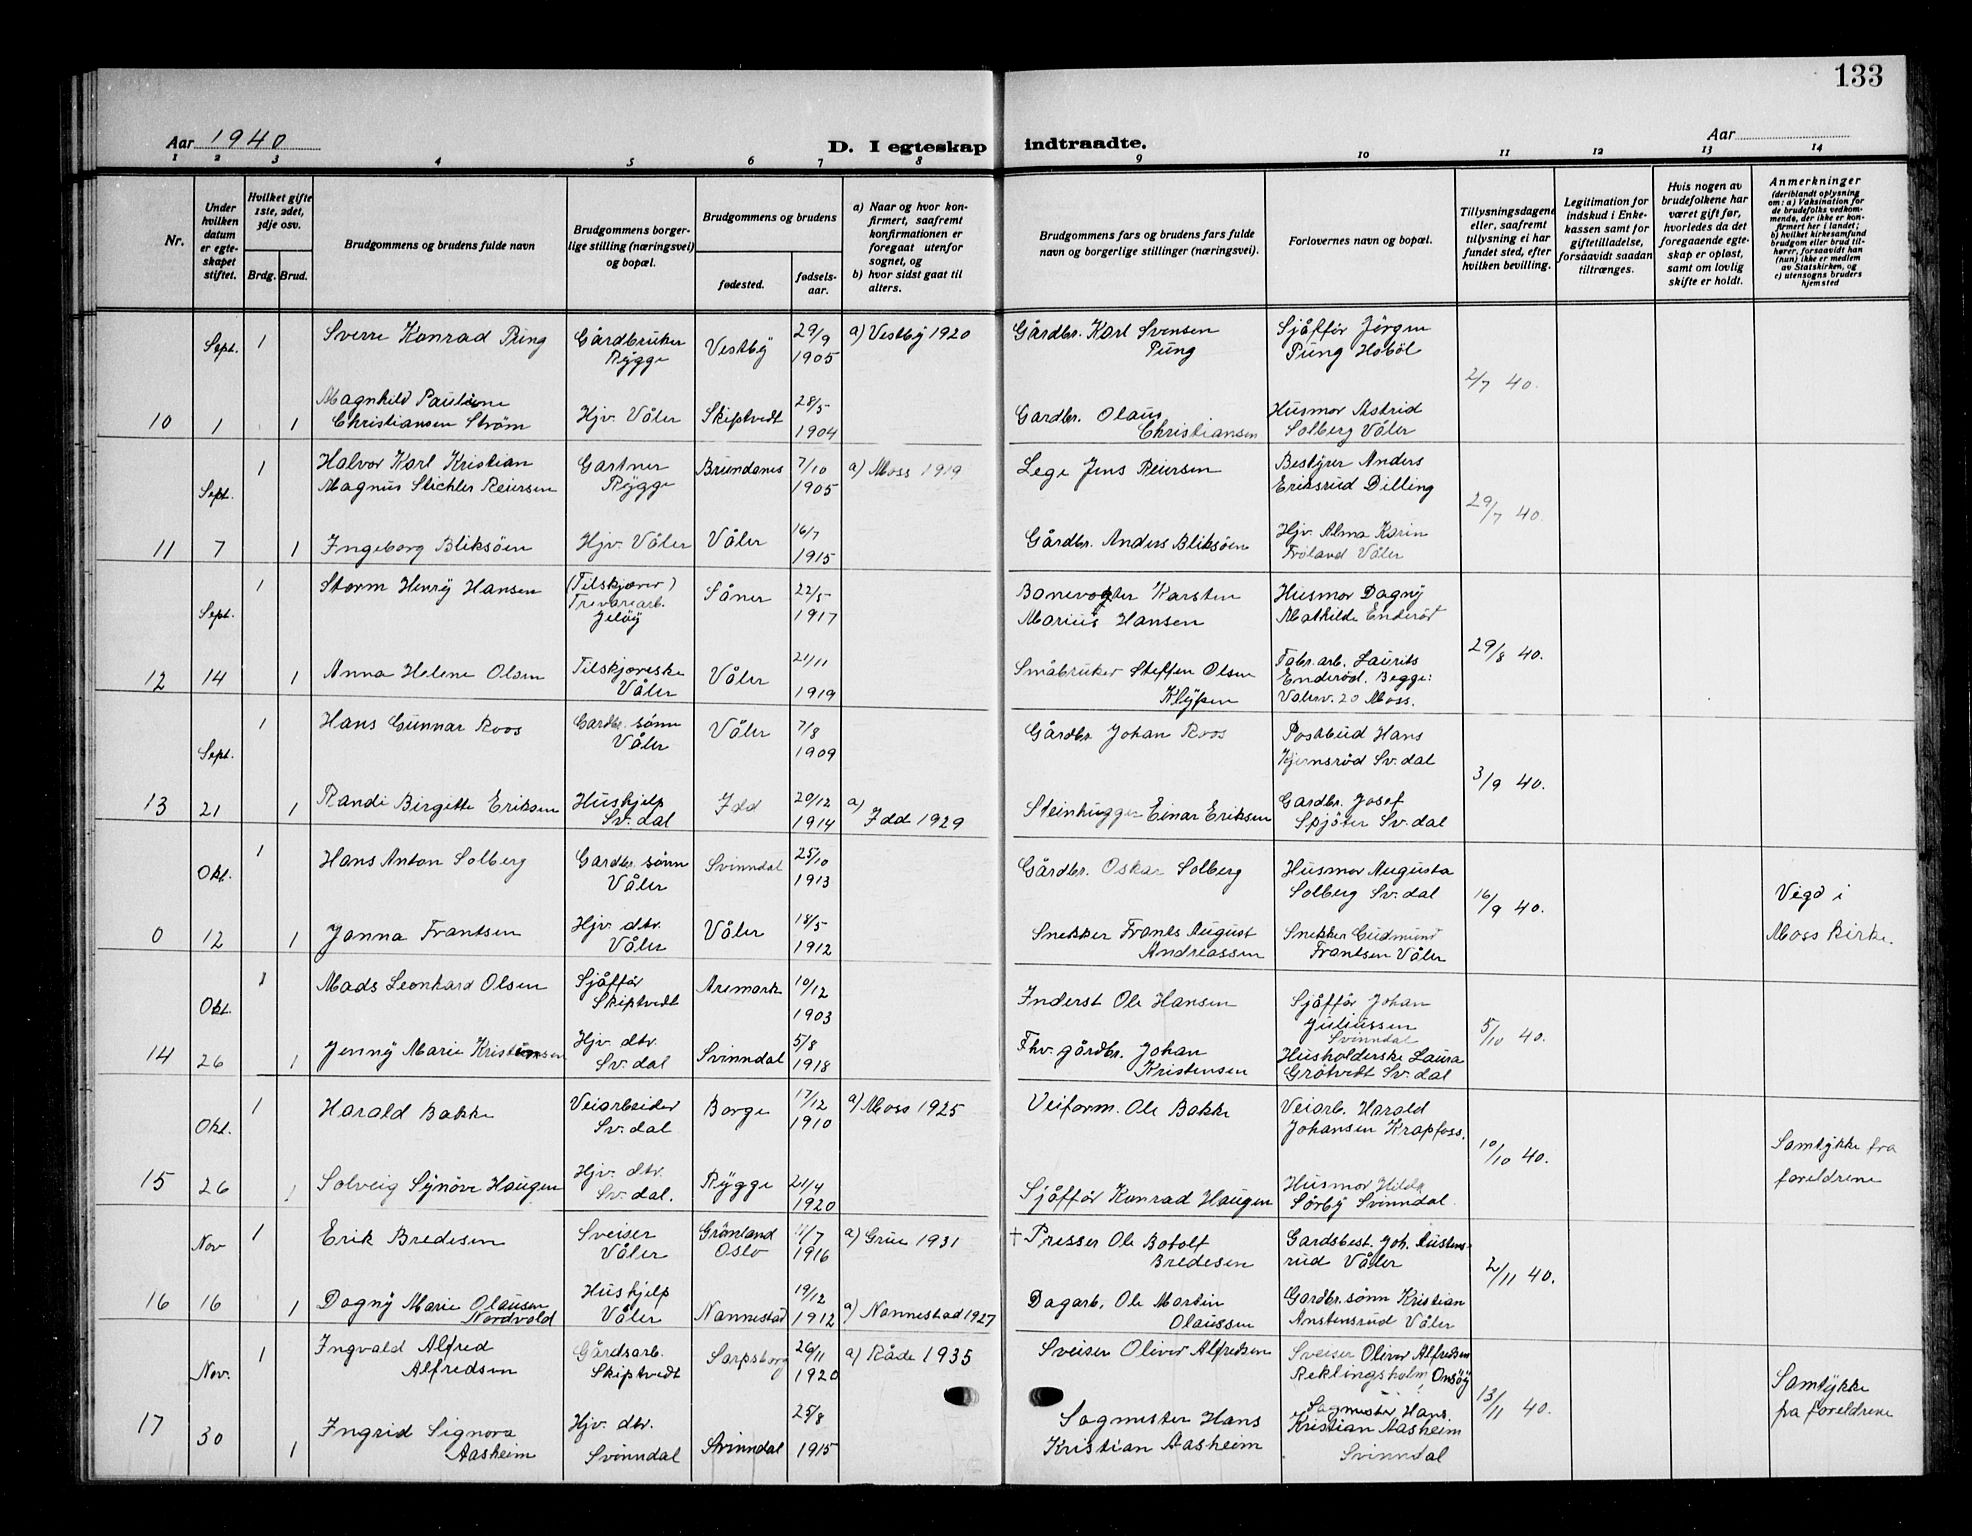 133
Aar 1940
D. I egteskap indtraadte.
Aar
1 2 3 4 5 6 7 8 9 10 11 12 13 14
Nr.
Under hvilken datum er egteskapet stiftet.
Hvilket gifte 1ste, 2det, 3dje osv.
Brdg. Brud.
Brudgommens og brudens fulde navn
Brudgommens borgerlige stilling (næringsvei) og bopæl.
Brudgommens og brudens
fødested.
fødselsaar.
a) Naar og hvor konfirmert, saafremt konfirmationen er foregaat utenfor sognet, og
b) hvor sidst gaat til alters.
Brudgommens fars og brudens fars fulde navn og borgerlige stillinger (næringsvei).
Forlovernes navn og bopæl.
Tillysningsdagene eller, saafremt tillysning ei har fundet sted, efter hvilken bevilling.
Legitimation for indskud i Enkekassen samt for giftetilladelse, forsaavidt saadan tiltrænges.
Hvis nogen av brudefolkene har været gift før, hvorledes da det foregaaende egteskap er opløst, samt om lovlig skifte er holdt.
Anmerkninger
(deriblandt oplysning om: a) Vaksination for de brudefolks vedkommende, der ikke er konfirmert her i landet; b) hvilket kirkesamfund brudgom eller brud tilhører, forsaavidt han (hun) ikke er medlem av Statskirken, og c) utensogns bruders hjemsted
Sept. 1 Sverre Konrad Pung Gårdbruker Rygge Vestby 29/9 1905 a) Vestby 1920 Gårdbr. Karl Svensen Pung Sjåfför Jörgen Pung Hoböl
2/7 40.
10 1 1 Magnhild Pauline Christiansen Ström Hjv. Våler Skiptvedt 28/5 1904 Gardbr. Olaus Christiansen Husmor Astrid Solberg Våler
Sept. 1 Halvor Karl Kristian Magnus Stichler Reiersen Gartner Rygge 7/10 1905 a) Moss 1919 Lege Jens Reiersen Bestyrer Anders Eriksrud Dilling
29/7 40.
11 7 1 Ingeborg Bliksöen Hjv. Våler Våler 16/7 1915 Gårdbr. Anders Bliksöen Hjv. Alma Karin Fröland Våler
Sept. 1 Storm Henry Hansen (Tilskjærer) Trevarearb. Jelöy Såner 22/5 1917 Banevogter Karsten Marius Hansen Husmor Dagny Mathilde Enderöd
29/8 40.
12 14 1 Anna Helene Olsen Tilskjærerske Våler Våler 21/11 1919 Småbruker Steffen Olsen Klypen Fabr. arb. Laurits Enderöd. Begge: Valerv. 20 Moss.
Sept. 1 Hans Gunnar Roos Gardbr. sönn Våler Våler 7/8 1909 Gårdbr. Johan Roos Postbud Hans Kjernsröd Sv.dal
3/9 40.
13 21 1 Randi Birgitte Eriksen Hushjelp Sv.dal Idd 20/12 1914 a) Idd 1929 Steinhugger Einar Eriksen Gardbr. Josef Spjöter Sv.dal
Okt. 1 Hans Anton Solberg Gardbr. sönn Våler Svinndal 25/10 1913 Gårdbr. Oskar Solberg Husmor Augusta Solberg Sv.dal
16/9 40. Vigd i Moss kirke.
0 12 1 Janna Frantsen Hjv. dtr. Våler Våler 18/5 1912 Snekker Frants August Andreassen Snekker Gudmund Frantsen Våler
Okt. 1 Mads Leonhard Olsen Sjåfför Skiptvedt Aremark 10/12 1903 Inderst Ole Hansen Sjåfför Johan Juliussen Svinndal
5/10 40.
14 26 1 Jenny Marie Kristensen Hjv. dtr. Sv.dal Svinndal 5/8 1918 Fhv. gårdbr. Johan Kristensen Husholderske Laura Grötvedt Sv.dal
Okt. 1 Harald Bakke Veiarbeider Sv.dal Borge 17/12 1910 a) Moss 1925 Veiform. Ole Bakke Veiarb. Harald Johansen Krapfoss.
10/10 40. Samtykke fra foreldrene
15 26 1 Solveig Synöve Haugen Hjv. dtr. Sv.dal. Rygge 21/4 1920 Sjåfför Konrad Haugen Husmor Hilda Sörby Svinndal
Nov 1 Erik Bredesen Sveiser Våler Grönland Oslo 11/7 1916 a) Grue 1931 † Presser Ole Botolf Bredesen Gardsbest. Joh. rud Våler
2/11 40.
16 16 1 Dagny Marie Olausen Nordvold Hushjelp Våler Nannestad 19/12 1912 a) Nannestad 1927 Dagarb. Ole Martin Olaussen Gardbr. sönn Kristian Anstensrud Våler
Nov. 1 Ingvald Alfred Alfredsen Gårdsarb. Skiptvedt Sarpsborg 26/11 1920 a) Råde 1935 Sveiser Oliver Alfredsen Sveiser Oliver Alfredsen Reklingsholm, Onsöy
13/11 40. Samtykke fra foreldrene
17 30 1 Ingrid Signora Aasheim Hjv. dtr. Svinndal Svinndal 25/8 1915 Sagmester Hans Kristian Aasheim Sagmester Hans. Kristian Aasheim Svinndal